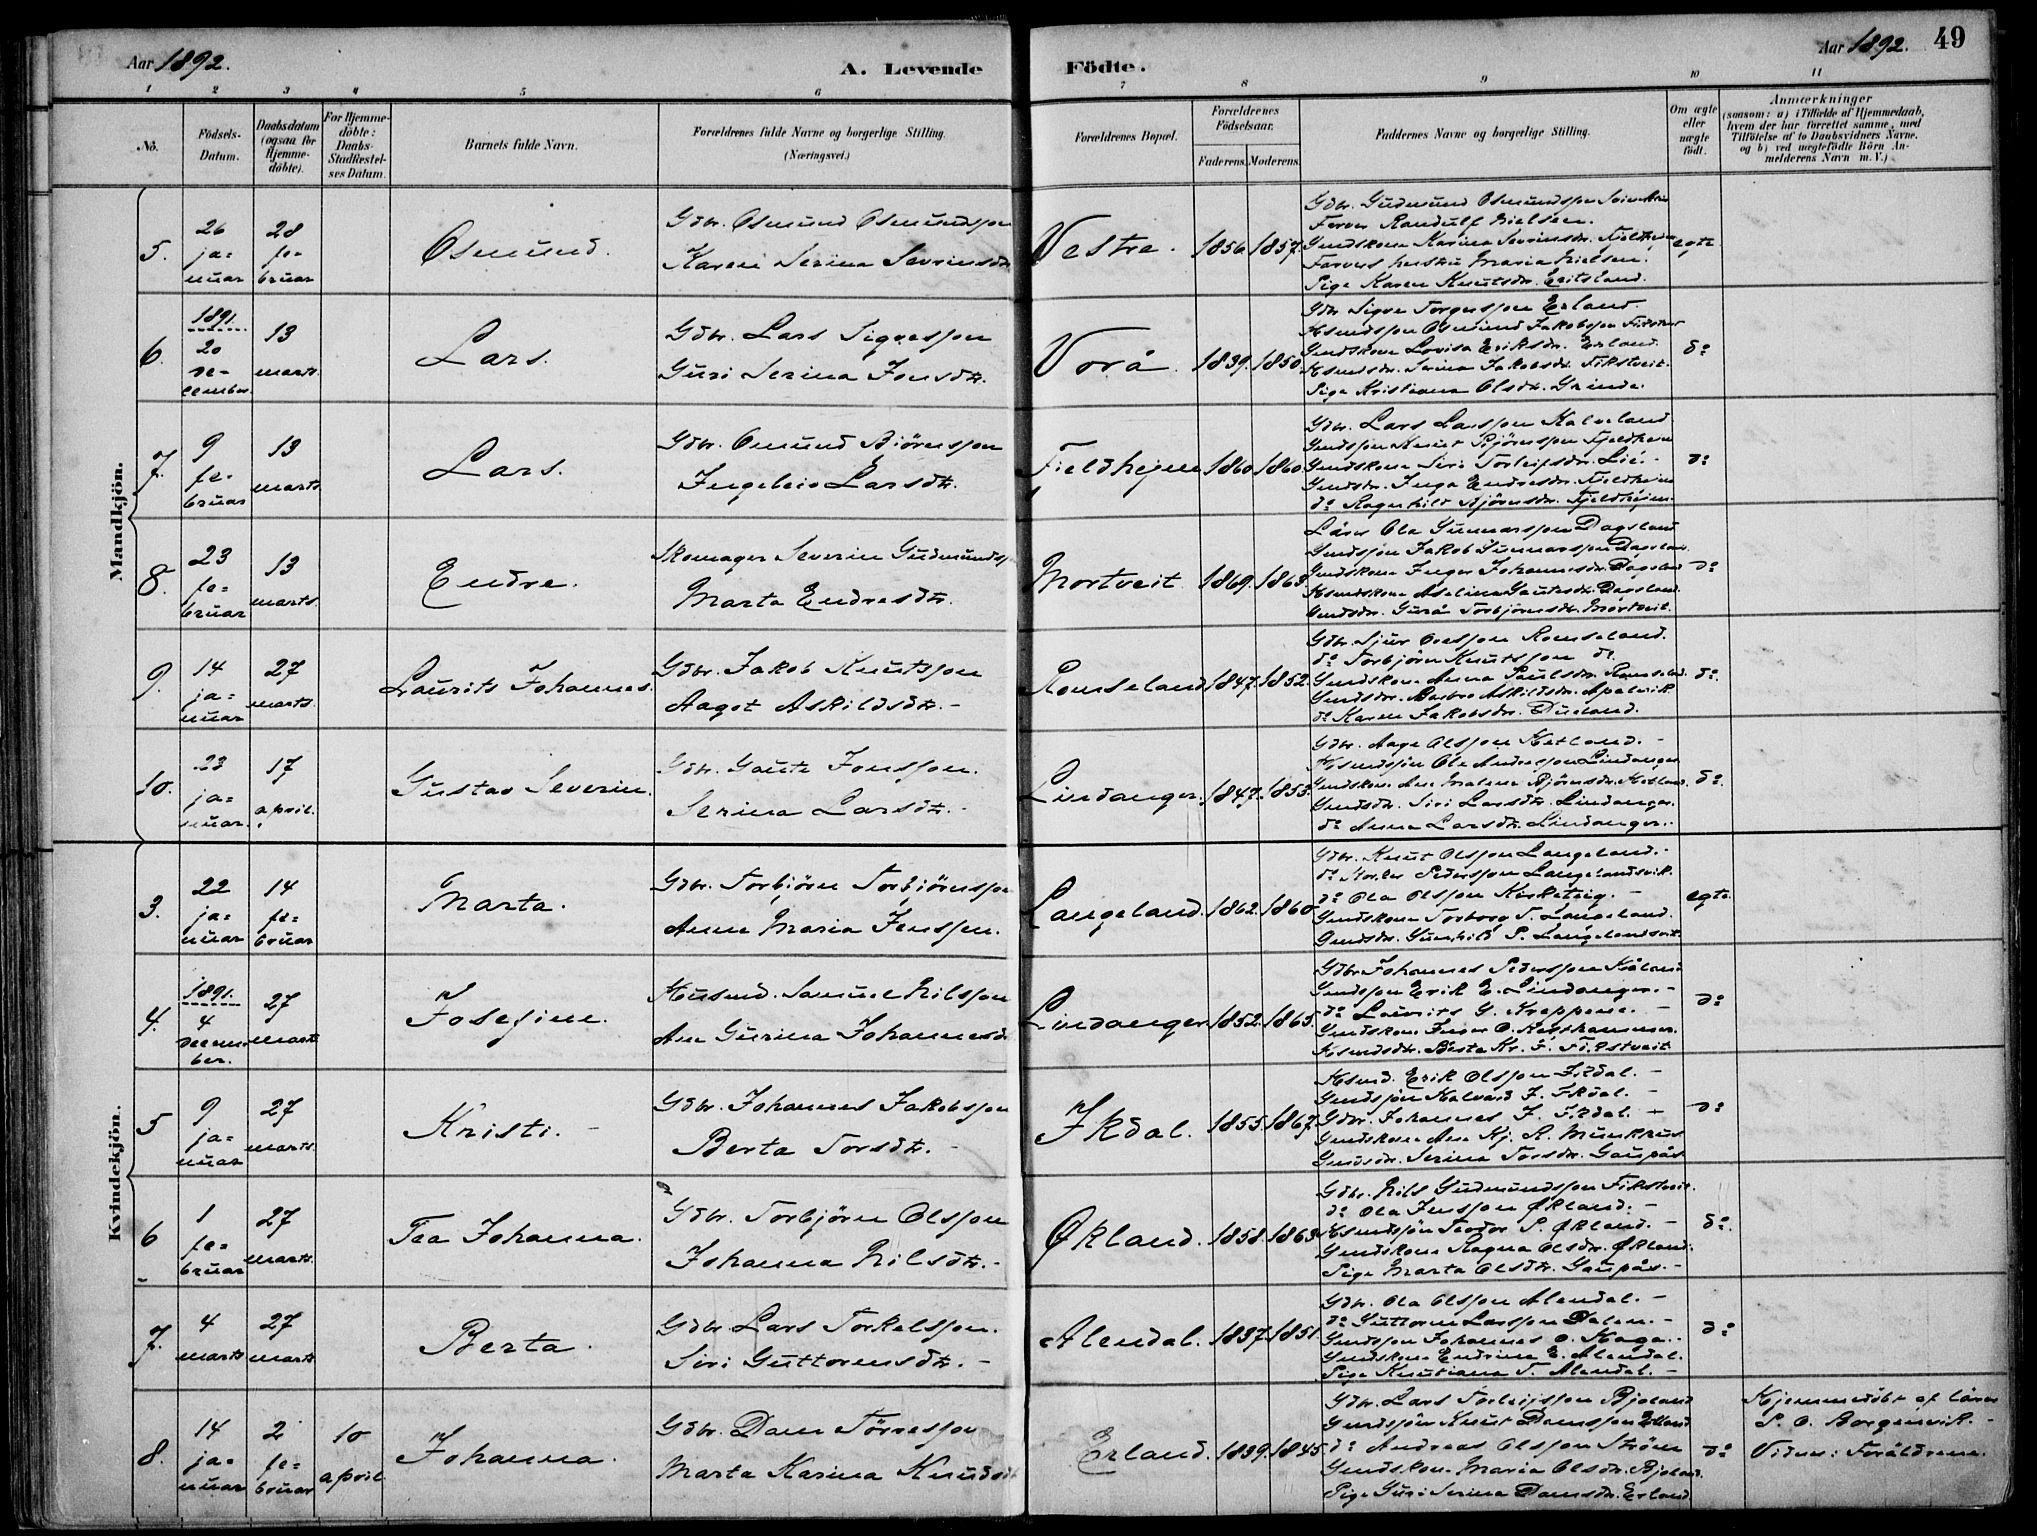 Aar 1892.
A. Levende
Födte.
Aar 1892. 49
1 2 3 4 5 6 7 8 9 10 11
No.
Födsels-
Datum.
Daabsdatum
(ogsaa for
Hjemme-
döbte).
For Hjemme-
döbte:
Daabs-
Stadfæstel-
ses Datum.
Barnets fulde Navn.
Forældrenes fulde Navne og borgerlige Stilling.
(Næringsvei.)
Forældrenes Bopæl.
Forældrenes
Födselsaar.
Faderens. Moderens.
Faddernes Navne og borgerlige Stilling.
Om ægte
eller
uægte
födt.
Anmærkninger
(saasom: a) i Tilfælde af Hjemmedaab,
hvem der har forrettet samme, med
Tilföielse af to Daabsvidners Navne.
og b) ved uægtefödte Börn An-
melderens Navn m. V.)
Mandkjön.
5.
26
ja-
nuar
28
fe-
bruar
Osmund.
Gdbr. Osmund Osmundsson
Karen Serina Sevrinsdtr.
Vestre.
1856 1857.
Gdbr. Gudmund Osmundsson
Farver Randulf Nielsen.
Gmdskone Karina Sevrinsdr.
Farvers hustru Maria Nielsen.
Pige Karen Knutsdr.
egte.
6.
1891.
20
de-
cember
13
marts.
Lars.
Gdbr. Lars Sigvesson
Guri Serina Jonsdtr.
Vorå.
1839. 1850.
Gdbr. Sigve Torgersson Erland
Hsmdssøn Osmund Jakobsson
Gmdskone Lovisa Eriksdr. Erland.
Hsmdsdr. Serina Jakobsdr. Fikstveit.
Pige Kristiana Olsdtr. Grinde.
do
7.
9
fe-
bruar
13
marts
Lars.
Gdbr. Osmund Björnsson
Ingeleiv Larsdtr.
Fjeldhejm
1860 1860.
Gdbr. Lars Larsson Kalveland
Gmdssøn Knut Björnsson Fjeldheim
Gmdskone Siri Torleifsdr. Lie.
Gmdsdr. Inga Endresdr. Fjeldheim
do Ragnhild Björnsdr. Fjeldhejm.
do
8.
23
fe-
bruar
13
marts.
Endre.
Skomager Severin Gudmunds.
Marta Endresdtr.
Mortveit
1869. 1863.
Lärer Ola Gunnarsson Dagsland
Gmdssøn Jakob Gunnarsson Dagsland.
Gmdskone Inger Johannesdr. Dagsland
Hsmdskone Aselina Gautesdr. Dagsland.
Gmdsdr. Guro Torbjörnsdr. Mortveit.
do
9.
14
ja-
nuar
27
marts.
Laurits Johannes.
Gdbr. Jakob Knutsson
Aagot Askildsdtr.
Romseland
1847. 1852.
Gdbr. Sjur Olsson Romseland.
do Torbjörn Knutsson do
Gmdskone Anna Paulsdr. Romseland.
Gmdsdr. Barbro Askildsdr. Apelvik
do Karen Jakobsdr. Dueland.
do
10.
23
ja-
nuar.
17
april.
Gustav Severin.
Gdbr. Gaute Jonsson.
Serina Larsdtr.
Lindanger.
1847. 1853.
Gdbr. Aage Olsson Hetland.
Hsmdssøn Ole Andersson Lindanger
Gmdskone Ane Malena Björnsdr. Hetland.
Gmdsdr. Siri Larsdtr. Lindanger.
do Anna Larsdtr. Lindanger.
do
Kvindekjön.
3.
22
ja-
nuar
14
fe-
bruar
Marta.
Gdbr. Torbjörn Torbjörnsson
Anne Maria Jensson.
Langeland.
1862. 1860.
Gdbr. Knut Olsson Langeland.
do Pedersson Langelandsvik.
do Ola Olsson Kirketeig.
Gmdskone Torborg T. Langeland.
Gmdsdr. Gunhild P. Langelandsvik
egte.
4.
1891.
4
decem-
ber.
27
marts
Josefine.
Husmd. Samuel Nilsson
Ane Gurina Johannesdr
Lindanger
1852. 1865.
Gdbr. Johannes Pedersson
Gmdssøn Erik E. Lindanger.
do Laurits G. Kreppene.
Gmdskone Inger O.
Hsmdsdtr. Berta Kr. F. Fikstveit
do
5
9
ja-
nuar
27
marts.
Kristi.
Gdbr. Johannes Jakobsson
Berta Torsdtr.
Ikdal.
1855. 1867.
Hsmd. Erik Olsson Ikdal.
Gmdssøn Halvard J. Ikdal.
Gdbr. Johannes J. Ikdal.
Gmdskone Ane Kj. A. Munkhus
Gmdsdr. Serina Torsdr. Gaupås
do
6
1
fe-
bruar
27
marts.
Tea Johanna.
Gdbr. Torbjörn Olsson
Johanna Nilsdtr.
Økland.
1858. 1863.
Gdbr. Nils Gudmundsson Fikstveit.
do Ola Jensson Økland.
Hsmdssøn Teodor P. Økland.
Gmdskone Ragna Olsdr. Økland.
Pige Marta Olsdtr. Gaupås.
do
7.
4
marts
27
marts
Berta.
Gdbr. Lars Torkelsson.
Siri Guttormsdtr.
Alendal.
1837. 1851.
Gdbr. Ola Olsson Alendal.
do Guttorm Larsson Dalen.
Gmdssøn Johannes O. Haga.
Gmdskone Endrina E. Alendal.
Pige Knutiana T. Alendal.
do
8.
14
ja-
nuar
2
fe-
bruar
10
april
Johanna.
Gdbr. Dane Törresson
Marta Karina Knudsdt
Erland.
1839. 1845.
Gdbr. Lars Torleifsson Bjoland
Gmdssön Knut Danesson Erland
do Andreas Olsson Ström
Gmdskone Maria Olsdr. Bjoland.
Pige Guri Serina Danesdr. Erland
do
Hjemmedöbt af lärer
P. O. Borgenvik.
Vidner: Foräldrene.